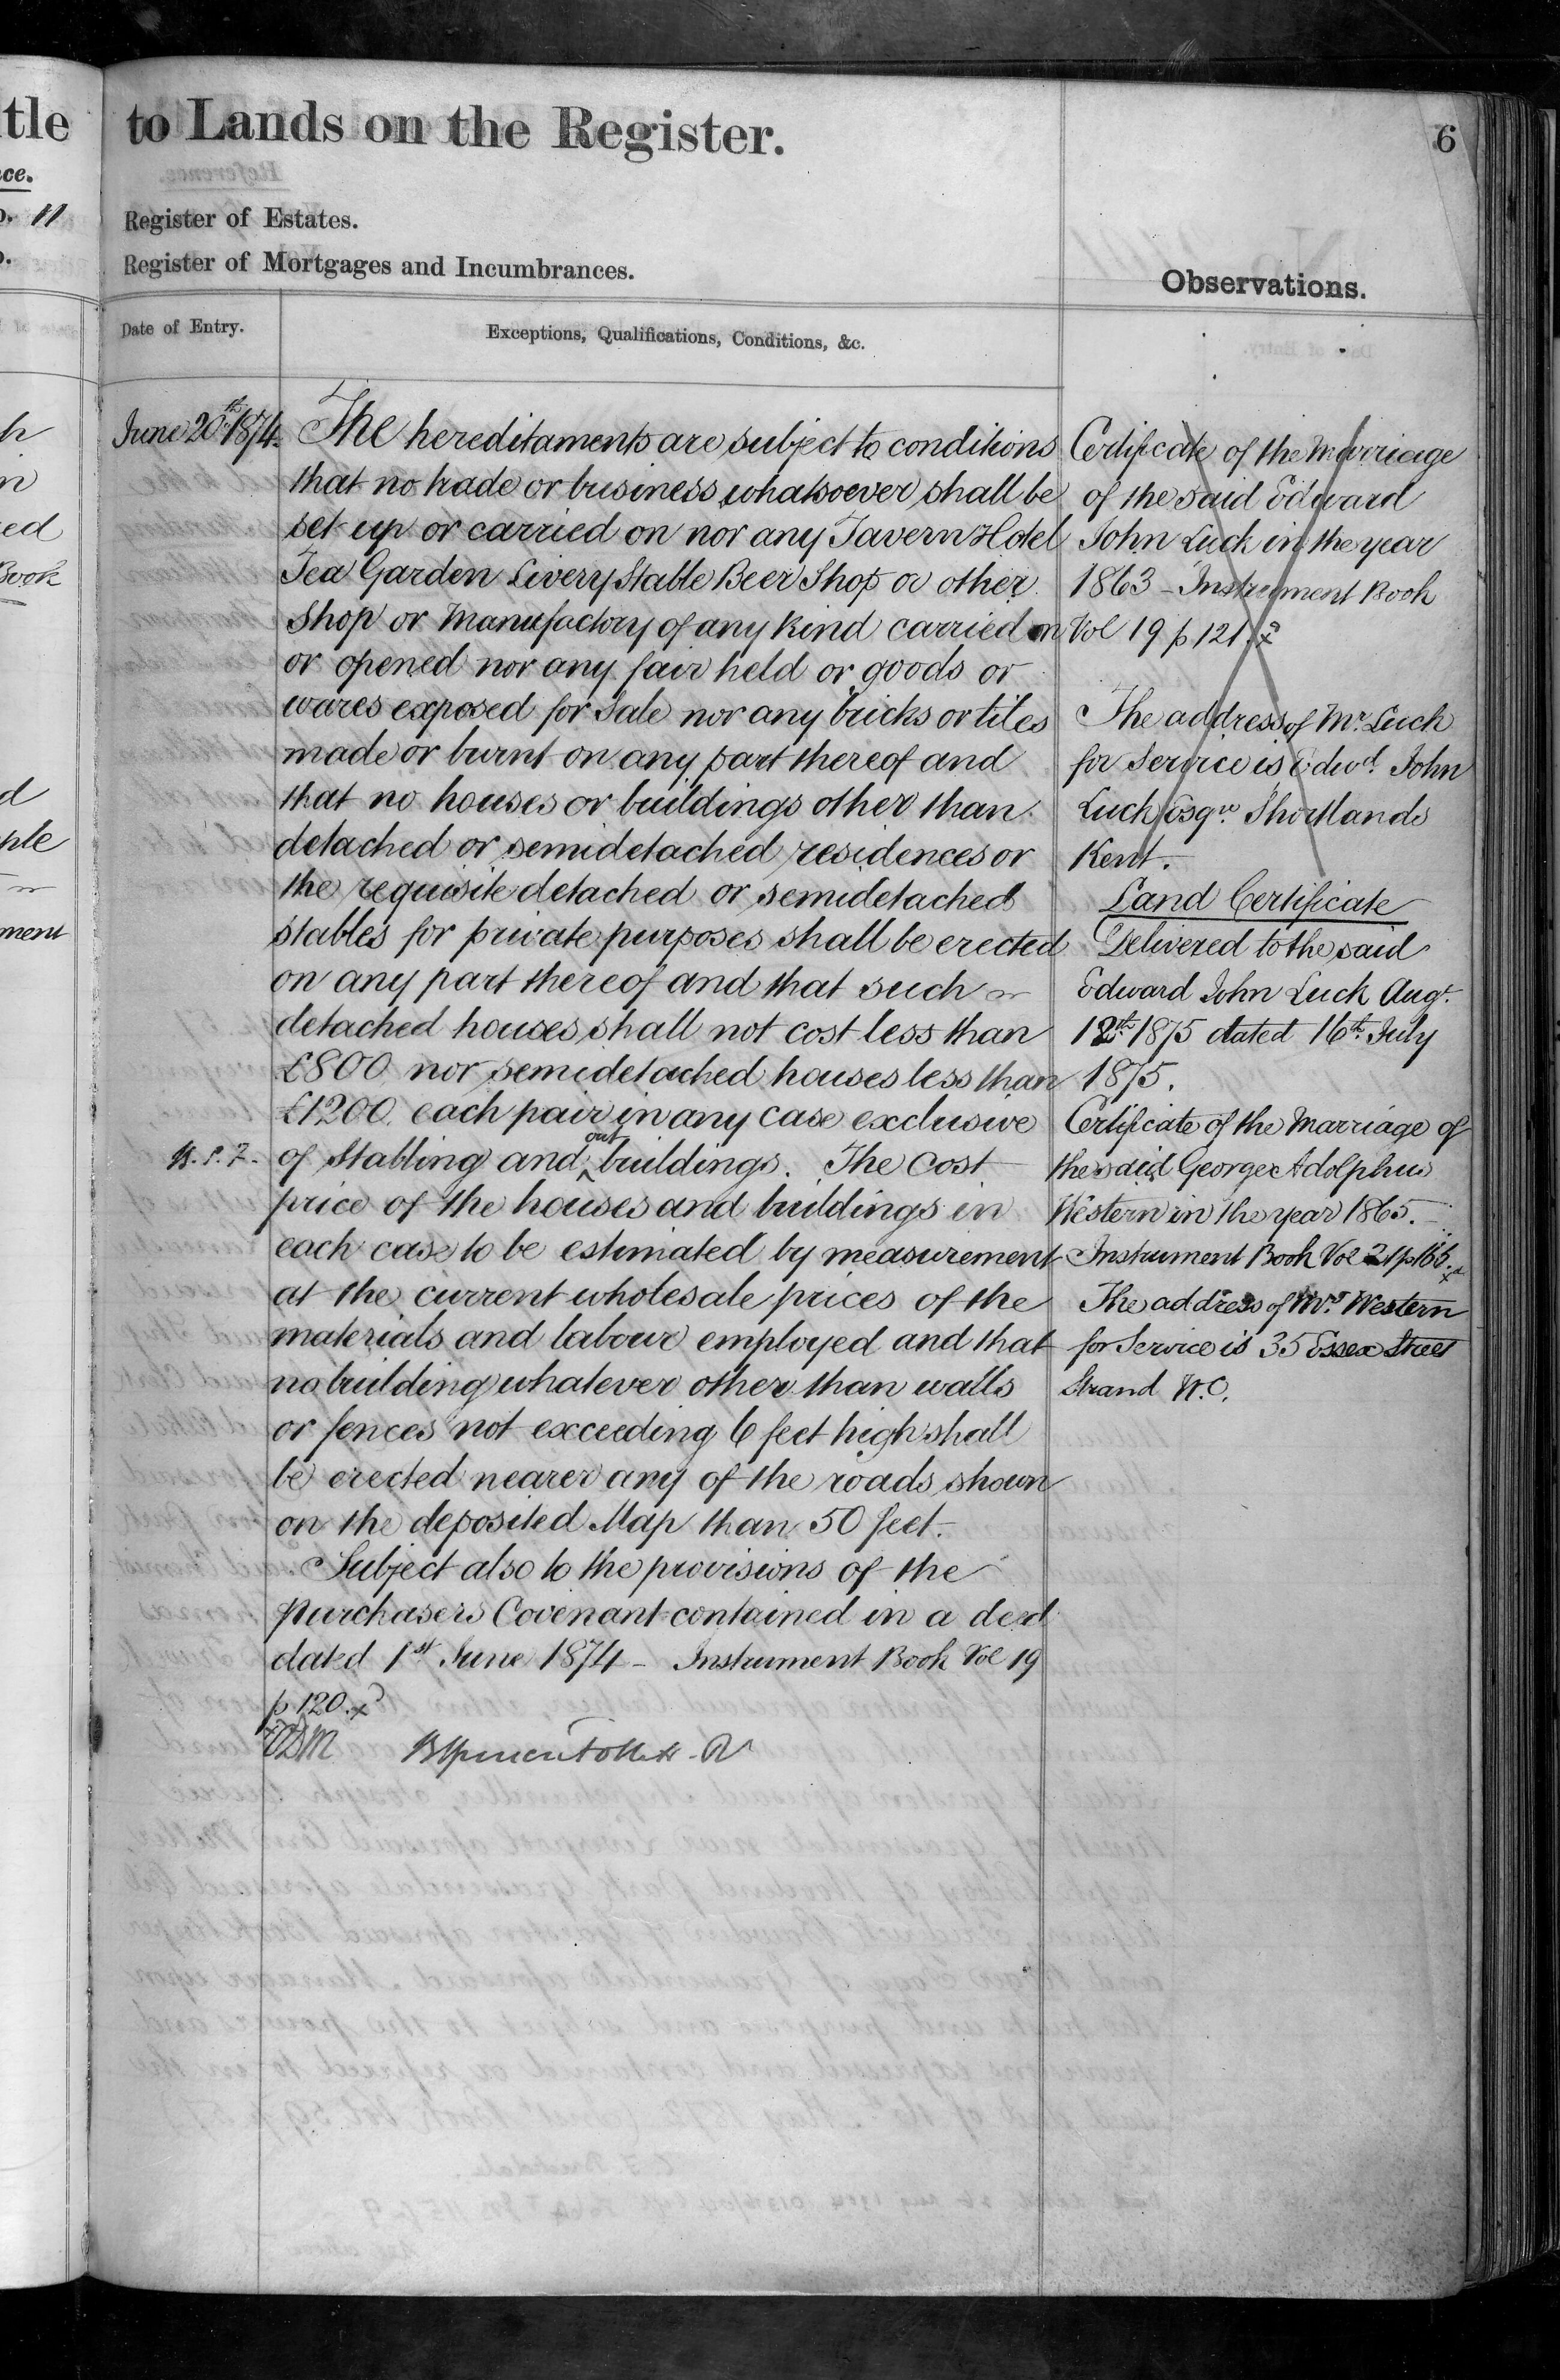 to Lands on the Register.
6
Register of Estates.
Register of Mortgages and Incumbrances.
Observations.
Date of Entry.
Exceptions, Qualifications, Conditions, &c.
June 20th 1874
The hereditaments are subject to conditions
that no trade or business whatsoever shall be
set up or carried on nor any Tavern Hotel
Tea Garden Livery Stable Beer Shop or other
Shop or Manufactory of any kind carried on
or opened nor any fair held or goods or
wares exposed for Sale nor any bricks or tiles
made or burnt on any part thereof and
that no houses or buildings other than
detached or semidetached residences or
the requisite detached or semidetached
stables for private purposes shall be erected
on any part thereof and that such
detached houses shall not cost less than
£800 nor semidetached houses less than
£1200 each pair in any case exclusive
of Stabling and out buildings. The cost
price of the houses and buildings in
each case to be estimated by measurement
at the current wholesale prices of the
materials and labour employed and that
no building whatever other than walls
or fences not exceeding 6 feet high shall
be erected nearer any of the roads shown
on the deposited Map than 50 feet.
Subject also to the provisions of the
purchasers Covenant contained in a deed
dated 1st June 1874 - Instrument Book Vol 19
p 120.
Certificate of the Marriage
of the said Edward
John Luck in the year
1863 - Instrument Book
Vol 19 p 121.
The address of Mr. Luck
for Service is Edwd. John
Luck Esqre. Shortlands
Kent.
Land Certificate
Delivered to the said
Edward John Luck Augt.
12th 1875 dated 16th July
1875.
Certificate of the Marriage of
the said George Adolphus
Western in the year 1865.
Instrument Book Vol 21 p 166.
The address of Mr. Western
for Service is 35 Essex Street
Strand W.C.
tle
ce.
11
ed
Book
d
ple
ment